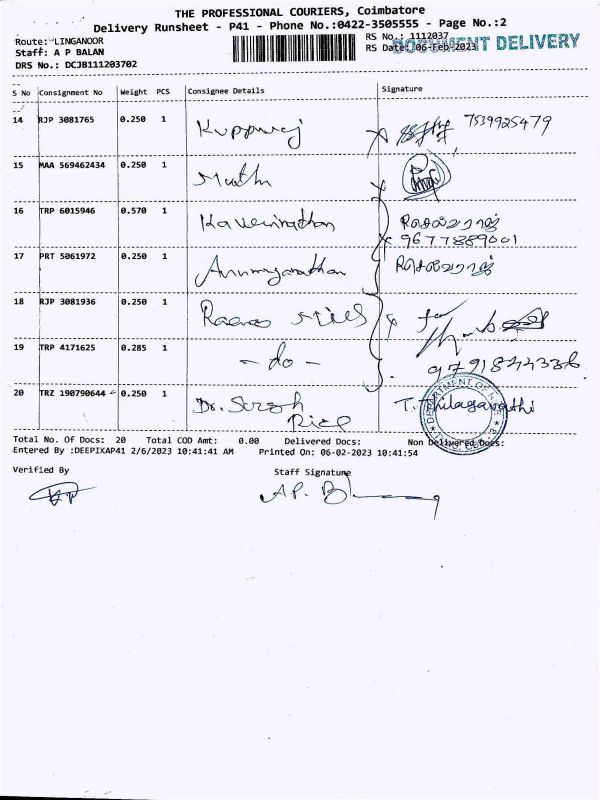 THE PROFESSIONAL COURIERS, Coimbatore
Delivery Runsheet - P41 - Phone No.:0422-3505555 - Page No.:2
Route: LINGANOOR
Staff: A P BALAN
DRS No.: DCJB111203702
RS No.: 1112037
RS Date: 06-Feb-2023
DOCUMENT DELIVERY
S No Consignment No Weight PCS Consignee Details Signature
14 RJP 3081765 0.250 1 Kuppuraj 7539925479
15 MAA 569462434 0.250 1 Muthu
16 TRP 6015946 0.570 1 செல்வராஜ்
9677889001
17 PRT 5061972 0.250 1 செல்வராஜ்
18 RJP 3081936 0.250 1 Mills for
19 TRP 4171625 0.285 1 - do - 9791844336
20 TRZ 190790644 - 0.250 1 Dr. Suresh T. Thilagavathi
Rice
DEPARTMENT OF
Total No. Of Docs: 20 Total COD Amt: 0.00 Delivered Docs: Non Delivered Docs:
Entered By :DEEPIKAP41 2/6/2023 10:41:41 AM Printed On: 06-02-2023 10:41:54
Verified By Staff Signature
A.P. B